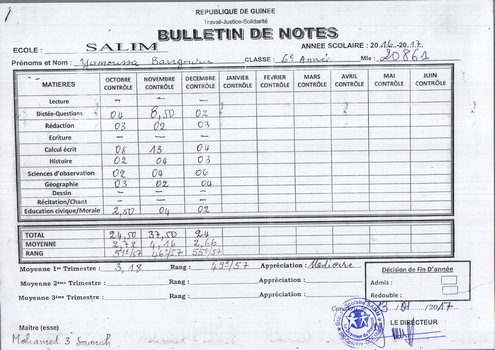 REPUBLIQUE DE GUINEE
Travail-Justice-Solidarité
BULLETIN DE NOTES
ECOLE : SALIM ANNEE SCOLAIRE : 2016-2017.
Prénoms et Nom : Yamoussa Bangoura CLASSE : 6e Année Mle : 20861
MATIERES OCTOBRE CONTRÔLE NOVEMBRE CONTRÔLE DECEMBRE CONTRÔLE JANVIER CONTRÔLE FEVRIER CONTRÔLE MARS CONTRÔLE AVRIL CONTRÔLE MAI CONTRÔLE JUIN CONTRÔLE
Lecture – – –
Dictée-Questions 04 8,50 02
Rédaction 03 02 03
Ecriture – – –
Calcul écrit 08 13 04
Histoire 02 04 03
Sciences d'observation 02 04 06
Géographie 03 02 04
Dessin – – –
Récitation/Chant – – –
Education civique/Morale 2,50 04 02
TOTAL 24,50 37,50 24
MOYENNE 2,72 4,16 2,66
RANG 51e/57 46e/57 55e/57
Moyenne 1er Trimestre : 3,18 Rang : 49e/57 Appréciation : Médiocre
Moyenne 2ème Trimestre : Rang : Appréciation :
Moyenne 3ème Trimestre : Rang : Appréciation :
Décision de Fin D'année
Admis :
Redouble :
01 /2017
LE DIRECTEUR
Maître (esse)
Mohamed 3